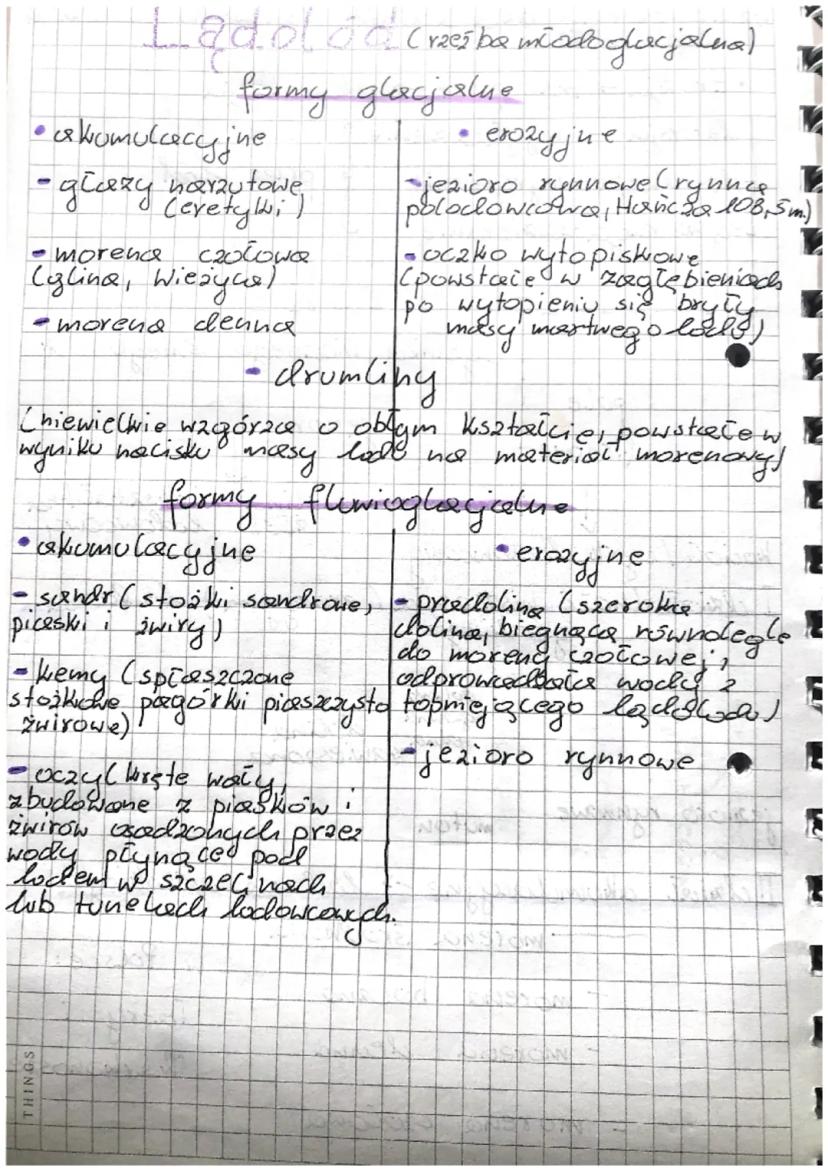 Lądolód (rzeźba młodoglacjalna)
formy glacjalne
• akumulacyjne
- głazy narzutowe
(eretyki)
- morena czołowa
(glina, Wieżyca)
- morena denna
• erozyjne
- jezioro rynnowe (rynna
polodowcowa, Hańcza 108,5m)
- oczko wytopiskowe
(powstałe w zagłębieniach
po wytopieniu się bryły
masy martwego lodu)
- drumliny
(niewielkie wzgórza o obłym kształcie, powstałe w
wyniku nacisku masy lodu na materiał morenowy)
formy fluwioglacjalne
• akumulacyjne
- sandr (stożki sandrowe,
piaski i żwiry)
- kemy (spłaszczone
stożkowe pagórki piaszczysto
żwirowe)
- oczy (kręte wały,
zbudowane z piasków i
żwirów osadzonych przez
wody płynące pod
lodem w szczelinach
lub tunelach lodowcowych.
• erozyjne
- pradolina (szeroka
dolina, biegnąca równolegle
do moreny czołowej,
odprowadzała wody z
topniejącego lądolodu)
- jezioro rynnowe
THINGS